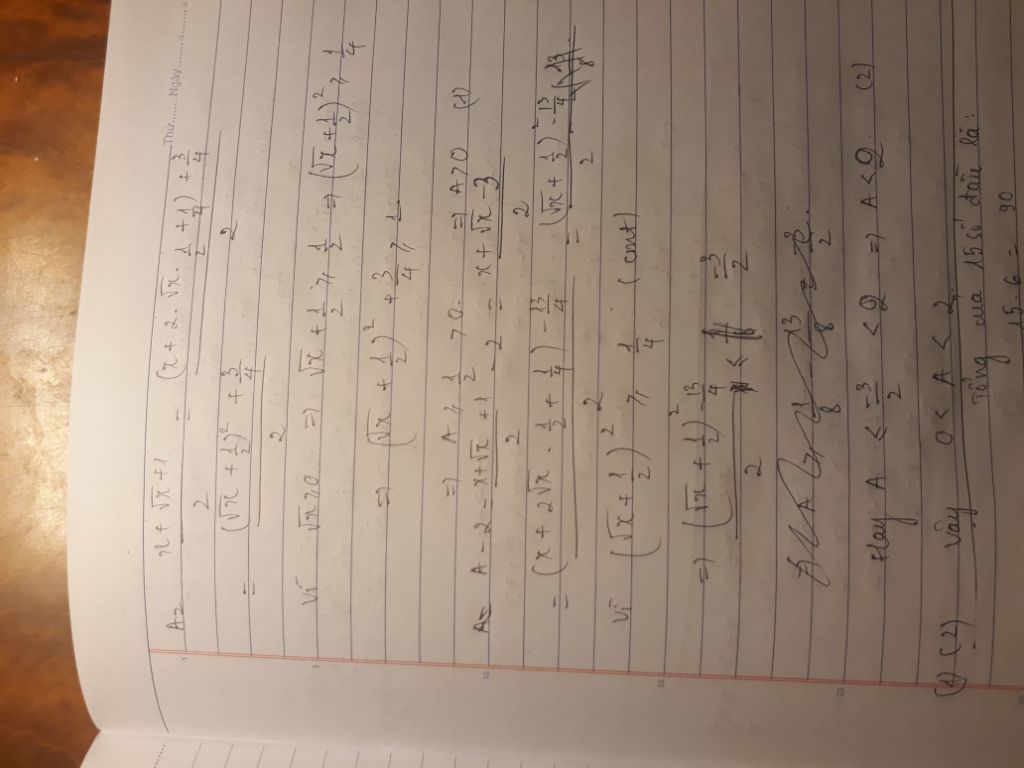 Thứ........ Ngày........
A = x + √x + 1 / 2 = (x + 2.√x. 1/2 + 1/4) + 3/4 / 2
= (√x + 1/2)² + 3/4 / 2
Vì √x ≥ 0 => √x + 1/2 ≥ 1/2 => (√x + 1/2)² ≥ 1/4
=> (√x + 1/2)² + 3/4 ≥ 1
=> A ≥ 1/2 > 0. => A > 0 (1)
A - 2 = x + √x + 1 / 2 - 2 = x + √x - 3 / 2
= (x + 2√x . 1/2 + 1/4) - 13/4 / 2 = (√x + 1/2)² - 13/4 / 2
Vì (√x + 1/2)² ≥ 1/4 (cmt)
=> (√x + 1/2)² - 13/4 / 2 < -3/2
Hay A < -3/2 < 2 => A < 2. (2)
(1) (2) vậy 0 < A < 2
Tổng của 15 số đầu là:
15.6 = 90